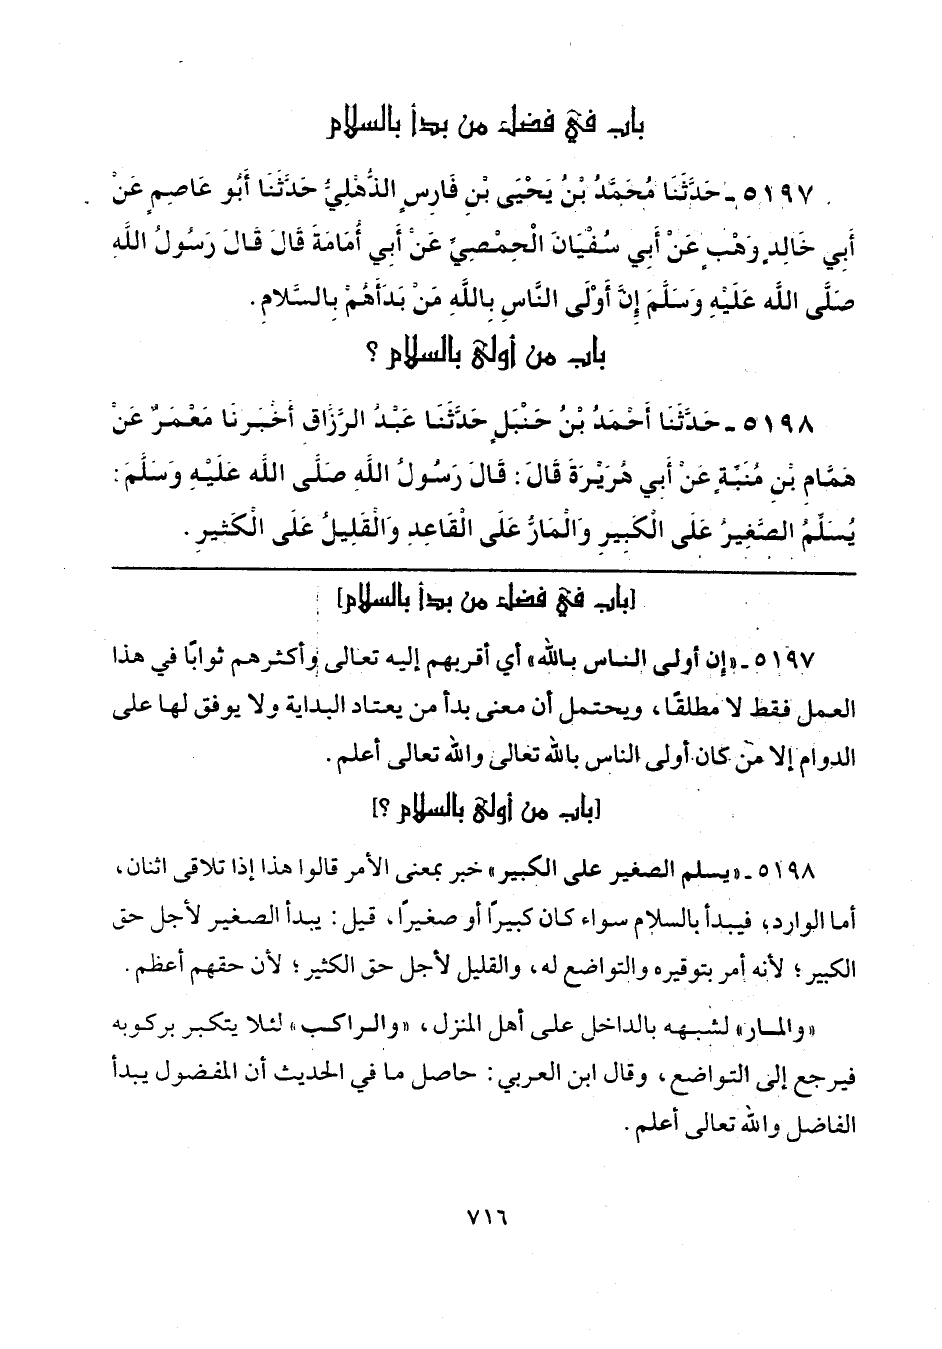 باب في فضل من بدأ بالسلام
٥١٩٧ ـ حَدَّثَنَا مُحَمَّدُ بْنُ يَحْيَى بْنِ فَارِسٍ الذُّهْلِيُّ حَدَّثَنَا أَبُو عَاصِمٍ عَنْ
أَبِي خَالِدٍ وَهْبٍ عَنْ أَبِي سُفْيَانَ الْحِمْصِيِّ عَنْ أَبِي أُمَامَةَ قَالَ قَالَ رَسُولُ اللَّهِ
صَلَّى اللَّه عَلَيْهِ وَسَلَّمَ إِنَّ أَوْلَى النَّاسِ بِاللَّهِ مَنْ بَدَأَهُمْ بِالسَّلَامِ.
باب من أولى بالسلام ؟
٥١٩٨ ـ حَدَّثَنَا أَحْمَدُ بْنُ حَنْبَلٍ حَدَّثَنَا عَبْدُ الرَّزَّاقِ أَخْبَرَنَا مَعْمَرٌ عَنْ
هَمَّامِ بْنِ مُنَبِّهٍ عَنْ أَبِي هُرَيْرَةَ قَالَ : قَالَ رَسُولُ اللَّهِ صَلَّى اللَّه عَلَيْهِ وَسَلَّمَ :
يُسَلِّمُ الصَّغِيرُ عَلَى الْكَبِيرِ وَالْمَارُّ عَلَى الْقَاعِدِ وَالْقَلِيلُ عَلَى الْكَثِيرِ .
[باب في فضل من بدأ بالسلام]
٥١٩٧ ـ «إن أولى الناس بالله» أي أقربهم إليه تعالى وأكثرهم ثوابًا في هذا
العمل فقط لا مطلقًا، ويحتمل أن معنى بدأ من يعتاد البداية ولا يوفق لها على
الدوام إلا من كان أولى الناس بالله تعالى والله تعالى أعلم.
[باب من أولى بالسلام ؟]
٥١٩٨ ـ «يسلم الصغير على الكبير» خبر بمعنى الأمر قالوا هذا إذا تلاقى اثنان،
أما الوارد، فيبدأ بالسلام سواء كان كبيرًا أو صغيرًا، قيل : يبدأ الصغير لأجل حق
الكبير؛ لأنه أمر بتوقيره والتواضع له، والقليل لأجل حق الكثير؛ لأن حقهم أعظم.
«والمار» لشبهه بالداخل على أهل المنزل، «والراكب» لئلا يتكبر بركوبه
فيرجع إلى التواضع، وقال ابن العربي: حاصل ما في الحديث أن المفضول يبدأ
الفاضل والله تعالى أعلم.
٧١٦